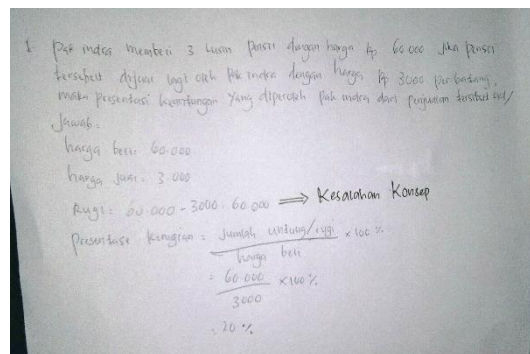 1. Pak indra membeli 3 lusin Pensil dengan harga Rp 60.000 Jika pensil
tersebut dijual lagi oleh Pak indra dengan harga Rp 3000 perbatang,
maka presentasi keuntungan yang diperoleh pak indra dari penjualan tersebut
Jawab:
harga beli: 60.000
harga jual: 3.000
Rugi: 60.000 - 3000 = 60.000 ⟹ Kesalahan Konsep
Presentase Kerugian = Jumlah untung/rugi × 100 %
harga beli
= 60.000 × 100 %
3000
= 20 %